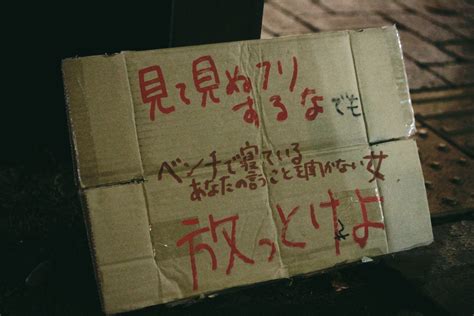 見て見ぬフリ
するな でも
ベンチで寝ている
あなたの言うことを聞かない女
放っとけよ